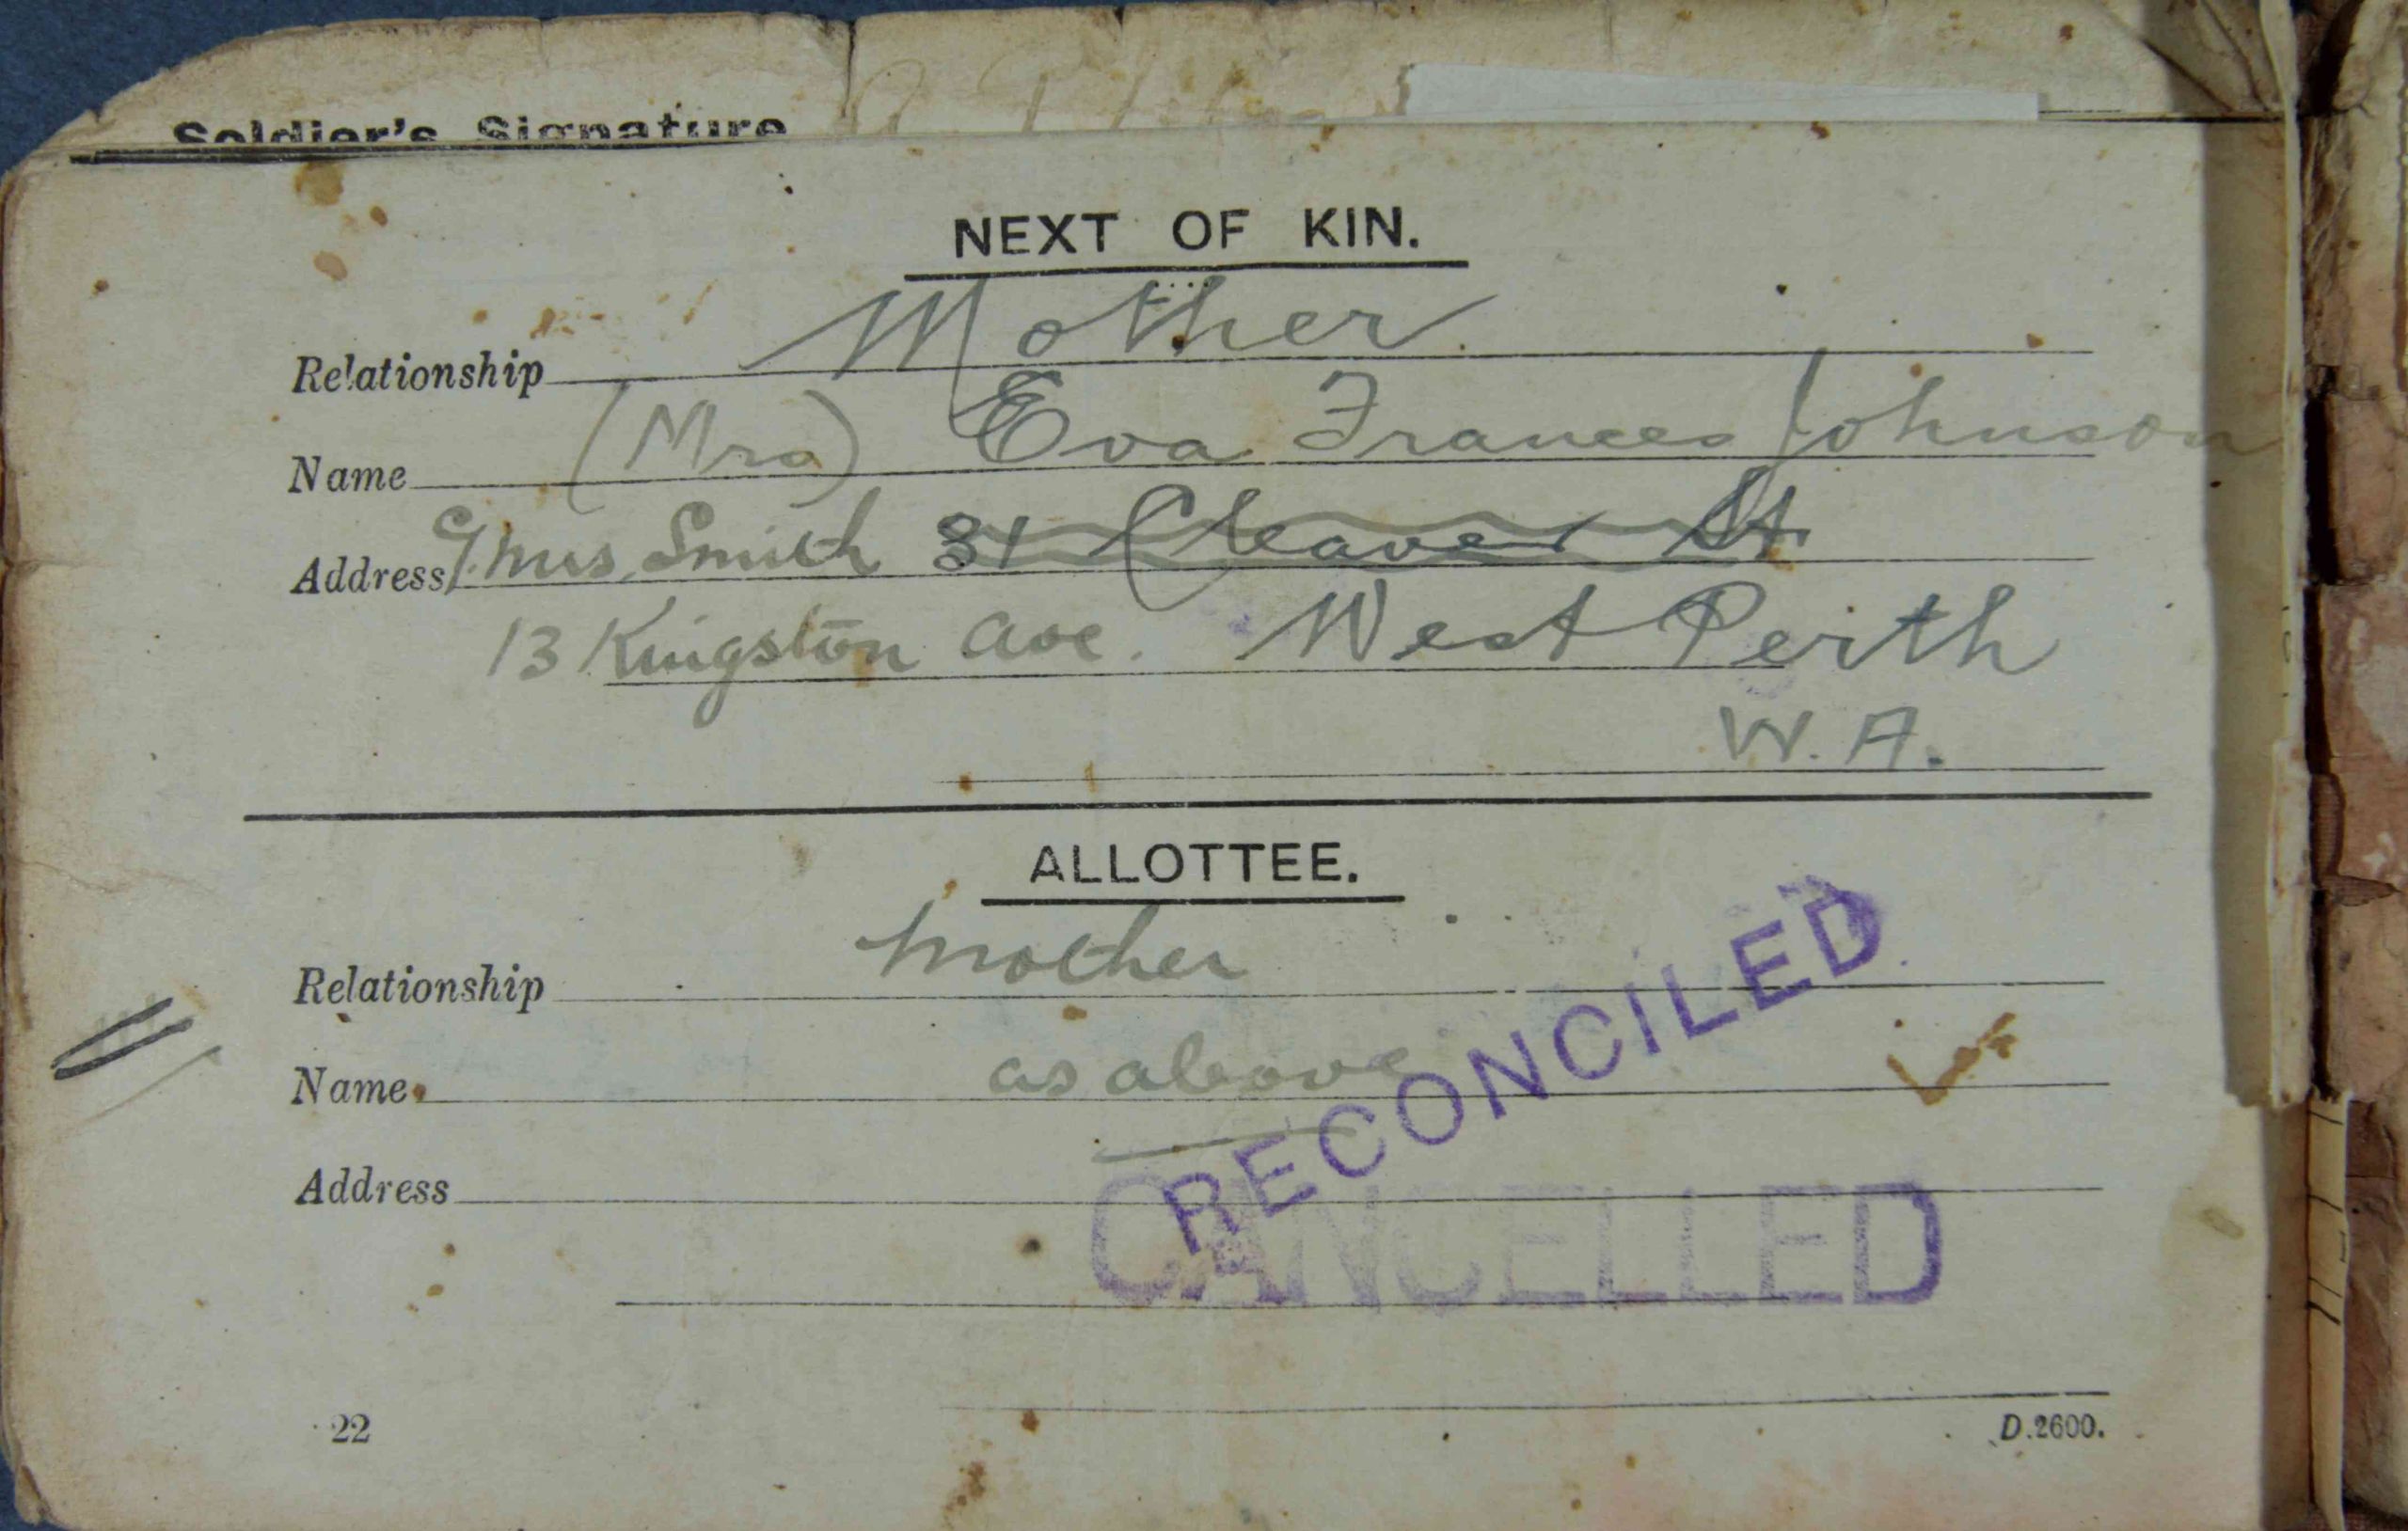 Soldier's Signature
NEXT OF KIN.
Relationship Mother
Name (Mrs) Eva Frances Johnson
Address Mrs. Smith 31 Cleaver St
13 Kingston Ave. West Perth
W. A.
ALLOTTEE.
Relationship Mother
Name as above
Address
RECONCILED
CANCELLED
22
D.2600.